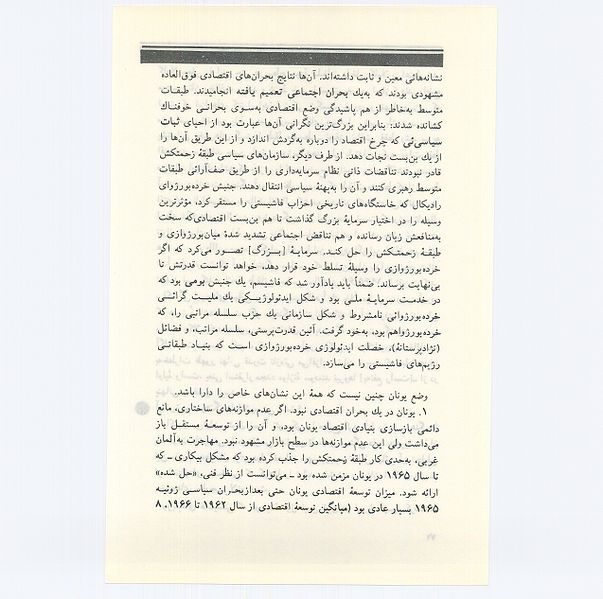 نشانه‌هائی معین و ثابت داشته‌اند. آن‌ها نتایج بحران‌های اقتصادی فوق‌العاده
مشهودی بودند که به‌یك بحران اجتماعی تعمیم یافته انجامیدند. طبقات
متوسط به‌خاطر از هم پاشیدگی وضع اقتصادی به‌سوی بحرانی خوفناك
کشانده شدند: بنابراین بزرگ‌ترین نگرانی آن‌ها عبارت بود از احیای ثبات
سیاسی‌ئی که چرخ اقتصاد را دوباره به‌گردش اندازد و از این طریق آن‌ها را
از یك بن‌بست نجات دهد. از طرف دیگر، سازمان‌های سیاسی طبقهٔ زحمتکش
قادر نبودند تناقضات ذاتی نظام سرمایه‌داری را از طریق صف‌آرائی طبقات
متوسط رهبری کنند و آن را به‌پهنهٔ سیاسی انتقال دهند. جنبش خرده‌بورژوای
رادیکال که خاستگاه‌های تاریخی احزاب فاشیستی را مستقر کرد، مؤثرترین
وسیله را در اختیار سرمایهٔ بزرگ گذاشت تا هم بن‌بست اقتصادی‌که سخت
به‌منافعش زیان رسانده و هم تناقض اجتماعی تشدید شدهٔ میان‌بورژوازی و
طبقهٔ زحمتکش را حل کند. سرمایهٔ [بزرگ] تصور می‌کرد که اگر
خرده‌بورژوازی را وسیلهٔ تسلط خود قرار دهد، خواهد توانست قدرتش تا
بی‌نهایت برساند. ضمناً باید یادآور شد که فاشیسم، یك جنبش بومی بود که
در خدمت سرمایهٔ ملی بود و شکل ایدئولوژیکی یك ملیت گرائی
خرده‌بورژوائی نامشروط و شکل سازمانی یك حزب سلسله مراتبی را، که
خرده‌بورژواهم بود، به‌خود گرفت. آئین قدرت‌پرستی، سلسله مراتب، و فضائل
(نژادپرستانهٔ)، خصلت ایدئولوژی خرده‌بورژوازی است که بنیاد طبقاتی
رژیم‌های فاشیستی را می‌سازد.
وضع یونان چنین نیست که همهٔ این نشان‌های خاص را دارا باشد.
۱. یونان در یك بحران اقتصادی نبود. اگر عدم موازنه‌های ساختاری، مانع
دائمی بازسازی بنیادی اقتصاد یونان بود، و آن را از توسعهٔ مستقل باز
می‌داشت ولی این عدم موازنه‌ها در سطح بازار مشهود نبود. مهاجرت به‌آلمان
غربی، به‌حدی کار طبقهٔ زحمتکش را جذب کرده بود که مشکل بیکاری ـ که
تا سال ۱۹۶۵ در یونان مزمن شده بود ـ می‌توانست از نظر فنی، «حل شده»
ارائه شود. میزان توسعهٔ اقتصادی یونان حتی بعدازبحران سیاسی ژوئیه
۱۹۶۵ بسیار عادی بود (میانگین توسعهٔ اقتصادی از سال ۱۹۶۲ تا ۱۹۶۶، ۸